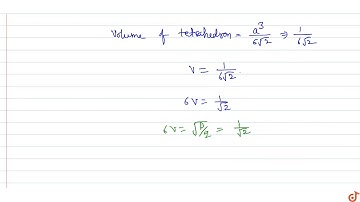 Volume of tetrahedron = a³/6√2 ⇒ 1/6√2
V = 1/6√2
6V = 1/√2
6V = √P/2 = 1/√2